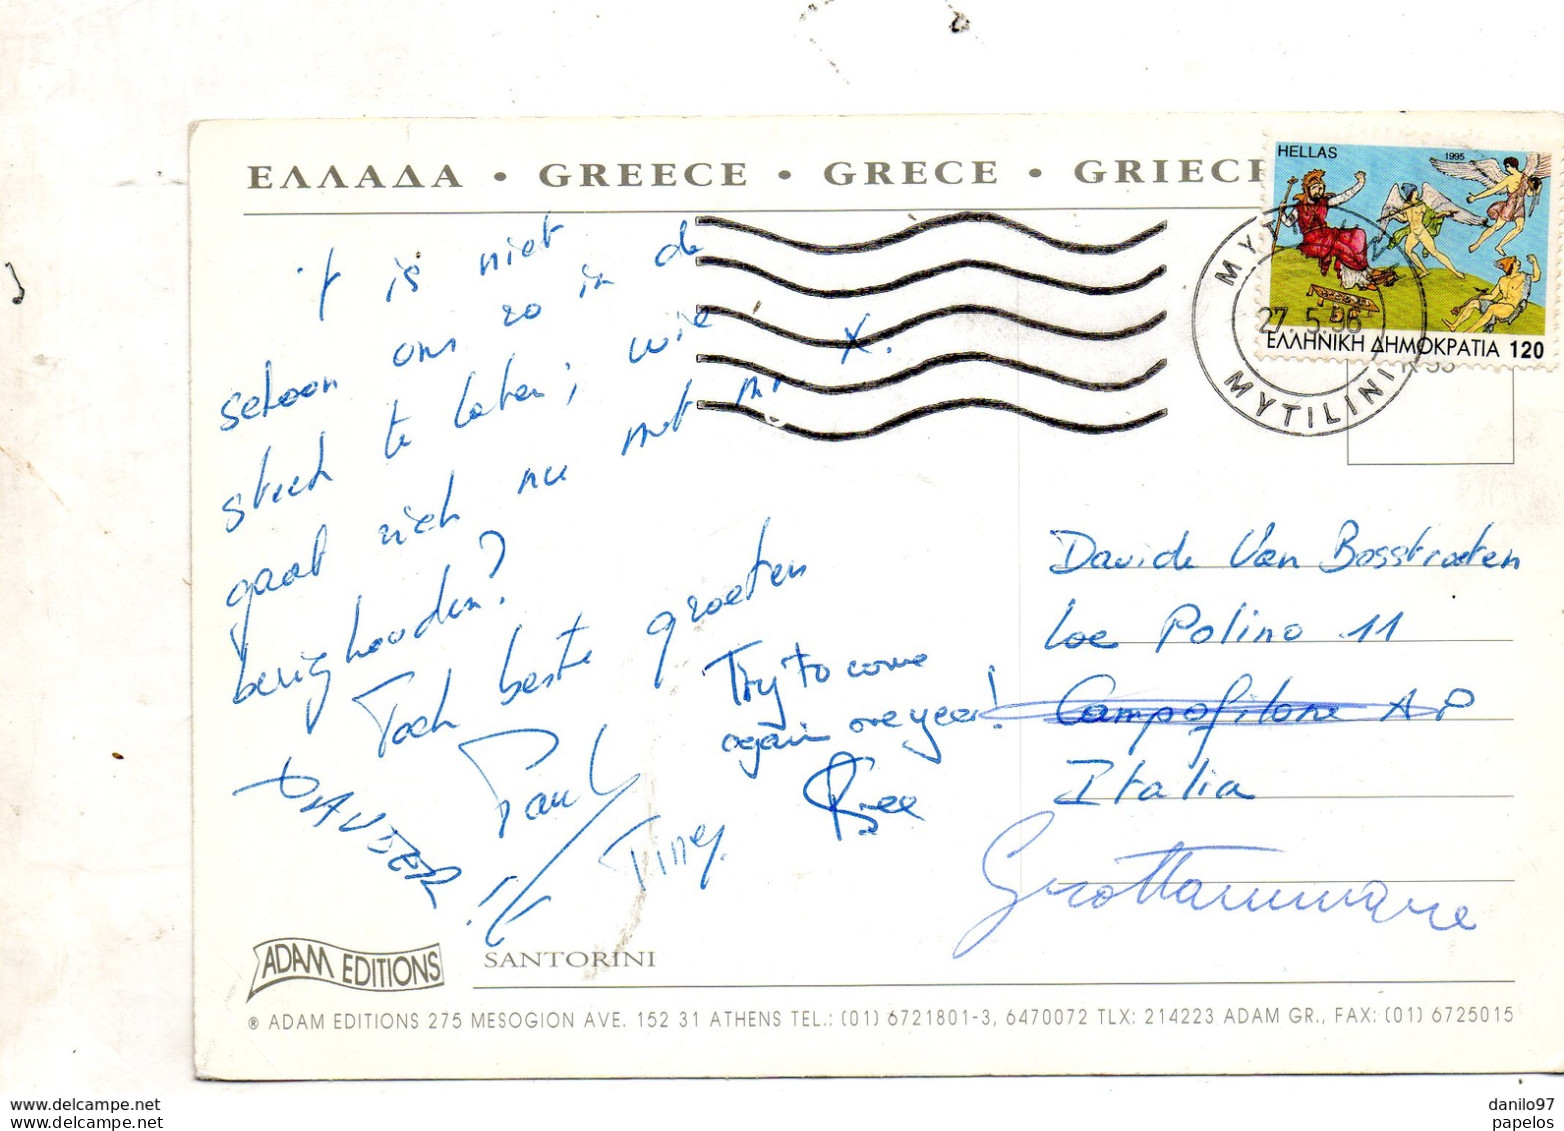 ΕΛΛΑΔΑ • GREECE • GRECE • GRIECH
HELLAS
1995
ΕΛΛΗΝΙΚΗ ΔΗΜΟΚΡΑΤΙΑ 120
27. 5.96
MYTILINI
't is niet
schoon ons zo in de
steek te laten; wie
gaat zich nu met mr X.
bezighouden?
Toch beste groeten
Paul
Tiney.
Try to come
again one year!
Davide Van Bosstraeten
Loc Polino 11
Campofilone AP
Italia
Grottammare
ADAM EDITIONS
SANTORINI
® ADAM EDITIONS 275 MESOGION AVE. 152 31 ATHENS TEL.: (01) 6721801-3, 6470072 TLX: 214223 ADAM GR., FAX: (01) 6725015
www.delcampe.net
www.delcampe.net
danilo97
papelos